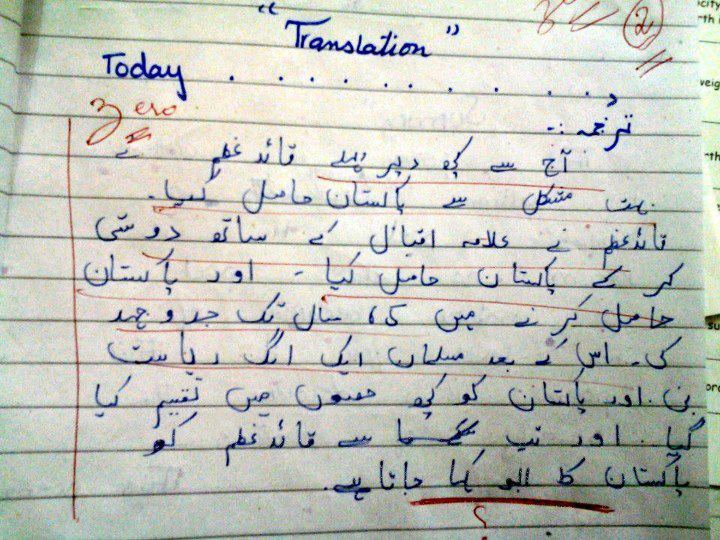 "Translation"
2
Today . . . . . . . . . . . .
Zero
ترجمہ :-
آج سے کچھ دیر پہلے قائد عظم نے
بہت مشکل سے پاکستان حاصل کیا۔
قائد عظم نے علامہ اقبال کے ساتھ دوستی
کر کے پاکستان حاصل کیا۔ اور پاکستان
حاصل کرنے میں 65 سال تک جدوجہد
کی۔ اس کے بعد مسلمان ایک الگ ریاست
بنی۔ اور پاکستان کو کچھ حصوں میں تقسیم کیا
گیا۔ اور تب سے قائد عظم کو
پاکستان کا ابو کہا جاتا ہے۔
?